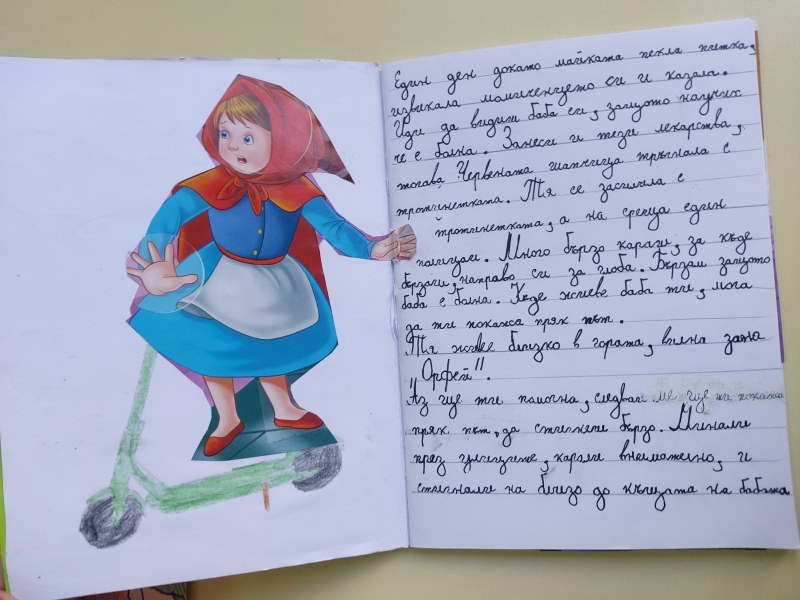 Един ден докато майката пекла питка,
извикала момиченцето си и казала.
Иди да видиш баба си, защото научих
че е болна. Занеси ѝ тези лекарства,
тогава Червената шапчица тръгнала с
тротинетката. Тя се засилила с
тротинетката, а на среща един
полицай. Много бързо караш, за къде
бързаш, направо си за глоба. Бързам защото
баба е болна. Къде живее баба ти, мога
да ти покажа пряк път.
Тя живее близко в гората, вилна зона
"Орфей".
"Аз ще ти помогна, следвай ме ще ти покажа
пряк път, да стигнеш бързо. Минали
през улиците, карали внимателно, и
стигнали на близо до къщата на бабата